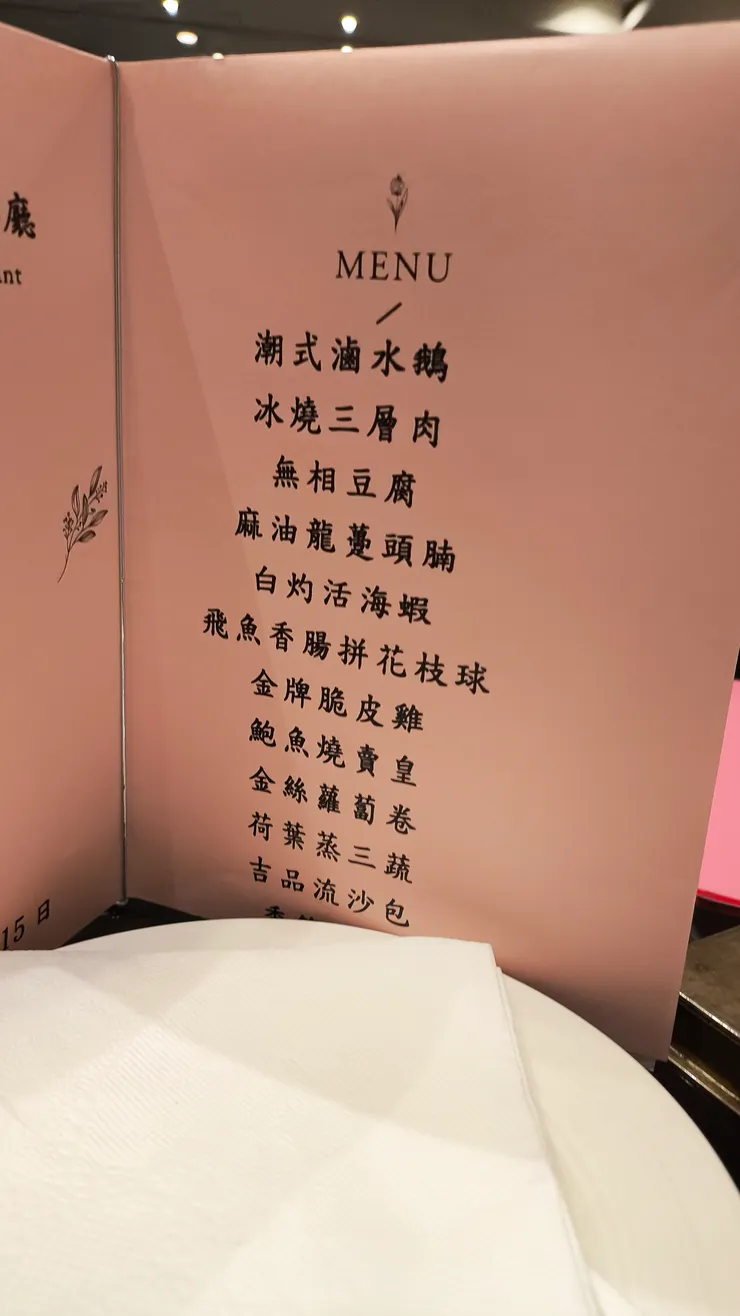 廳
ant
15日
MENU
潮式滷水鵝
冰燒三層肉
無相豆腐
麻油龍躉頭腩
白灼活海蝦
飛魚香腸拼花枝球
金牌脆皮雞
鮑魚燒賣皇
金絲蘿蔔卷
荷葉蒸三蔬
吉品流沙包